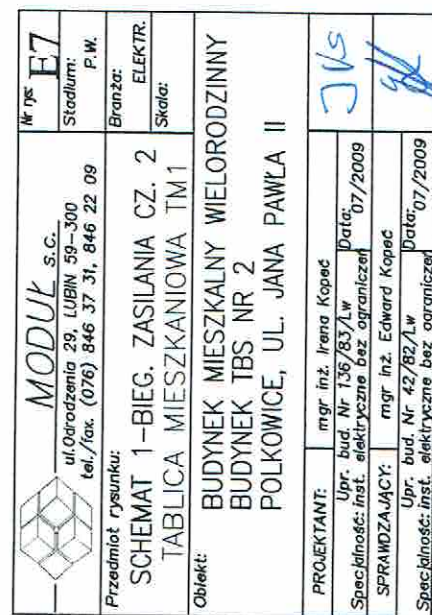 MODUŁ s.c.
ul.Odrodzenia 29, LUBIN 59-300
tel./fax. (076) 846 37 31, 846 22 09
Nr rys: E7
Stadium:
P.W.
Przedmiot rysunku:
SCHEMAT 1-BIEG. ZASILANIA CZ. 2
TABLICA MIESZKANIOWA TM1
Branża:
ELEKTR.
Skala:
Obiekt:
BUDYNEK MIESZKALNY WIELORODZINNY
BUDYNEK TBS NR 2
POLKOWICE, UL. JANA PAWŁA II
PROJEKTANT: mgr inż. Irena Kopeć
Upr. bud. Nr 136/83/Lw
Specjalność: inst. elektryczne bez ograniczeń
Data: 07/2009
SPRAWDZAJĄCY: mgr inż. Edward Kopeć
Upr. bud. Nr 42/82/Lw
Specjalność: inst. elektryczne bez ograniczeń
Data: 07/2009